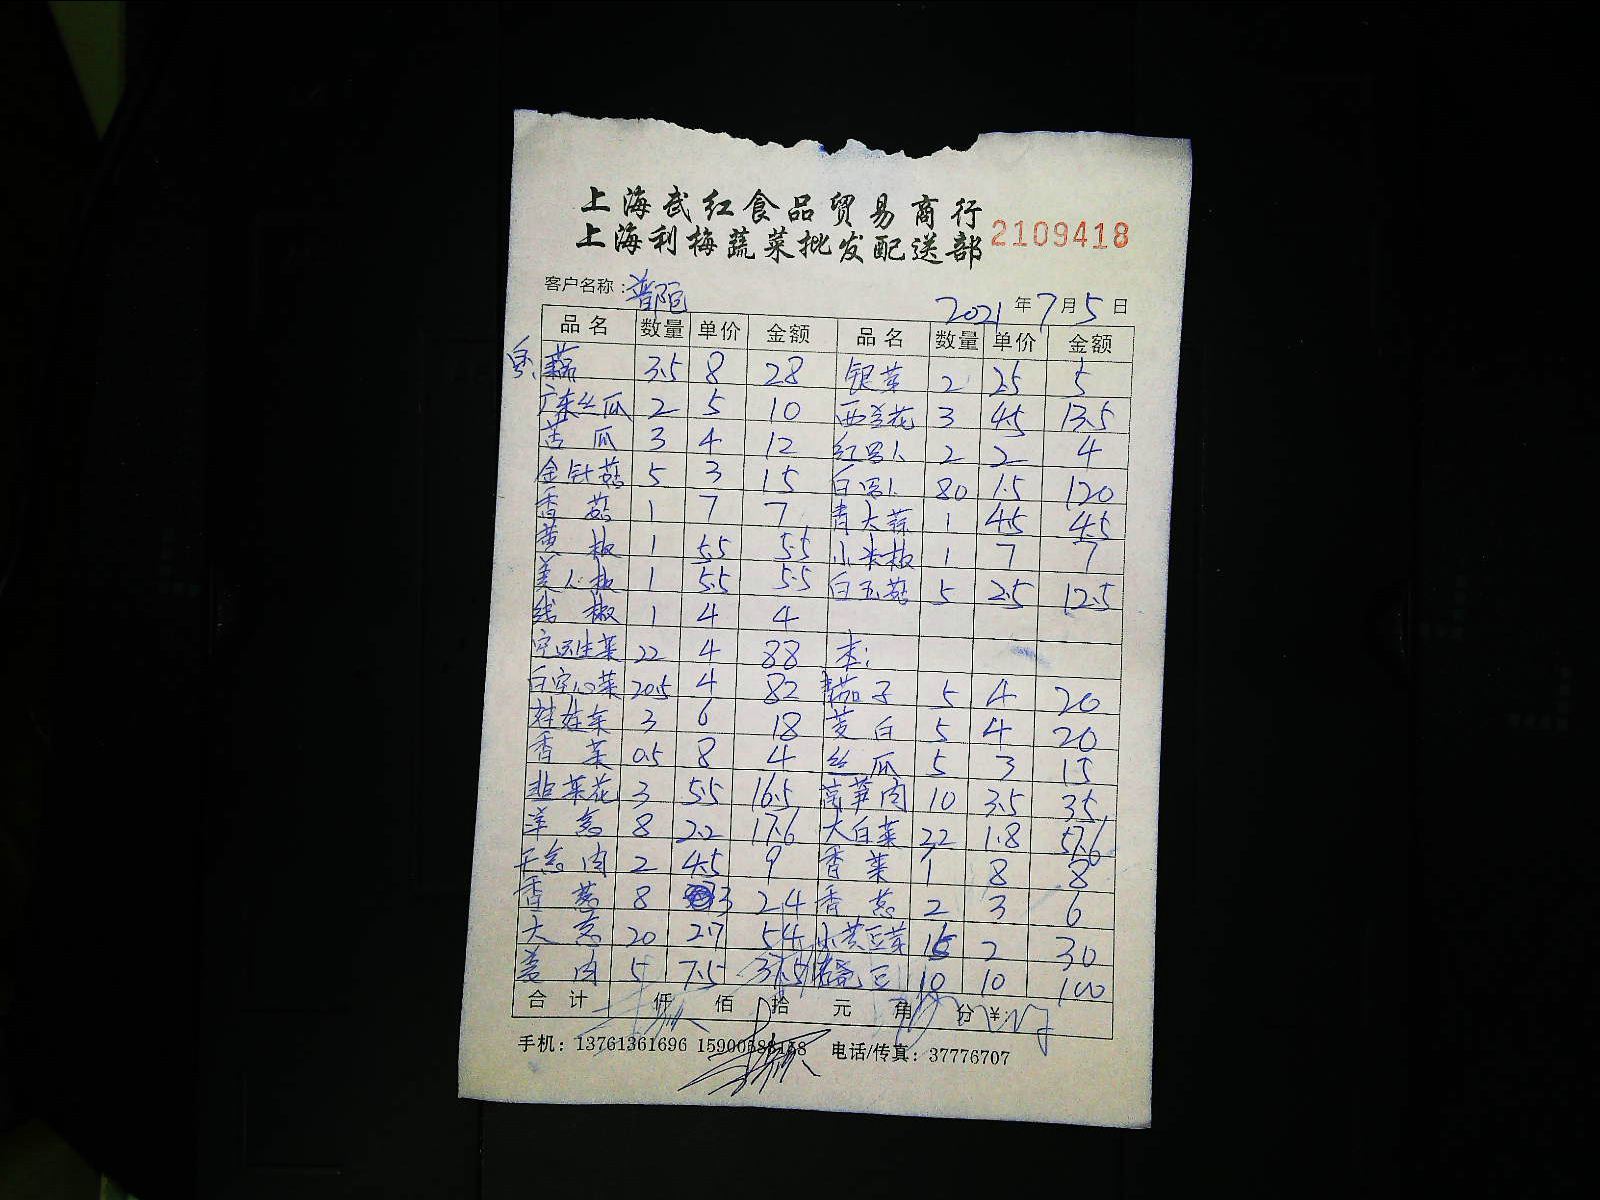 上海武红食品贸易商行
上海利梅蔬菜批发配送部 2109418
客户名称：普陀 2021年7月5日
品名 数量 单价 金额 品名 数量 单价 金额
藕 3.5 8 28 银芽 2 2.5 5
广东丝瓜 2 5 10 西兰花 3 4.5 13.5
苦瓜 3 4 12 红罗卜 2 2 4
金针菇 5 3 15 白罗卜 80 1.5 120
香菇 1 7 7 青大蒜 1 4.5 4.5
黄椒 1 5.5 5.5 小米椒 1 7 7
美人椒 1 5.5 5.5 白玉菇 5 2.5 12.5
线椒 1 4 4
生菜 22 4 88 本：
白空心菜 20.5 4 82 茄子 5 4 20
娃娃菜 3 6 18 茭白 5 4 20
香菜 0.5 8 4 丝瓜 5 3 15
韭菜花 3 5.5 16.5 莴笋肉 10 3.5 35
洋葱 8 2.2 17.6 大白菜 32 1.8 57.6
干葱肉 2 4.5 9 香菜 1 8 8
香葱 8 3 24 香葱 2 3 6
大葱 20 2.7 54 小黄豆芽 15 2 30
姜肉 5 7.5 37.5 豆 10 10 100
合计 仟 佰 拾 元 角 分 ¥：
手机：13761361696 15900588158 电话/传真：37776707